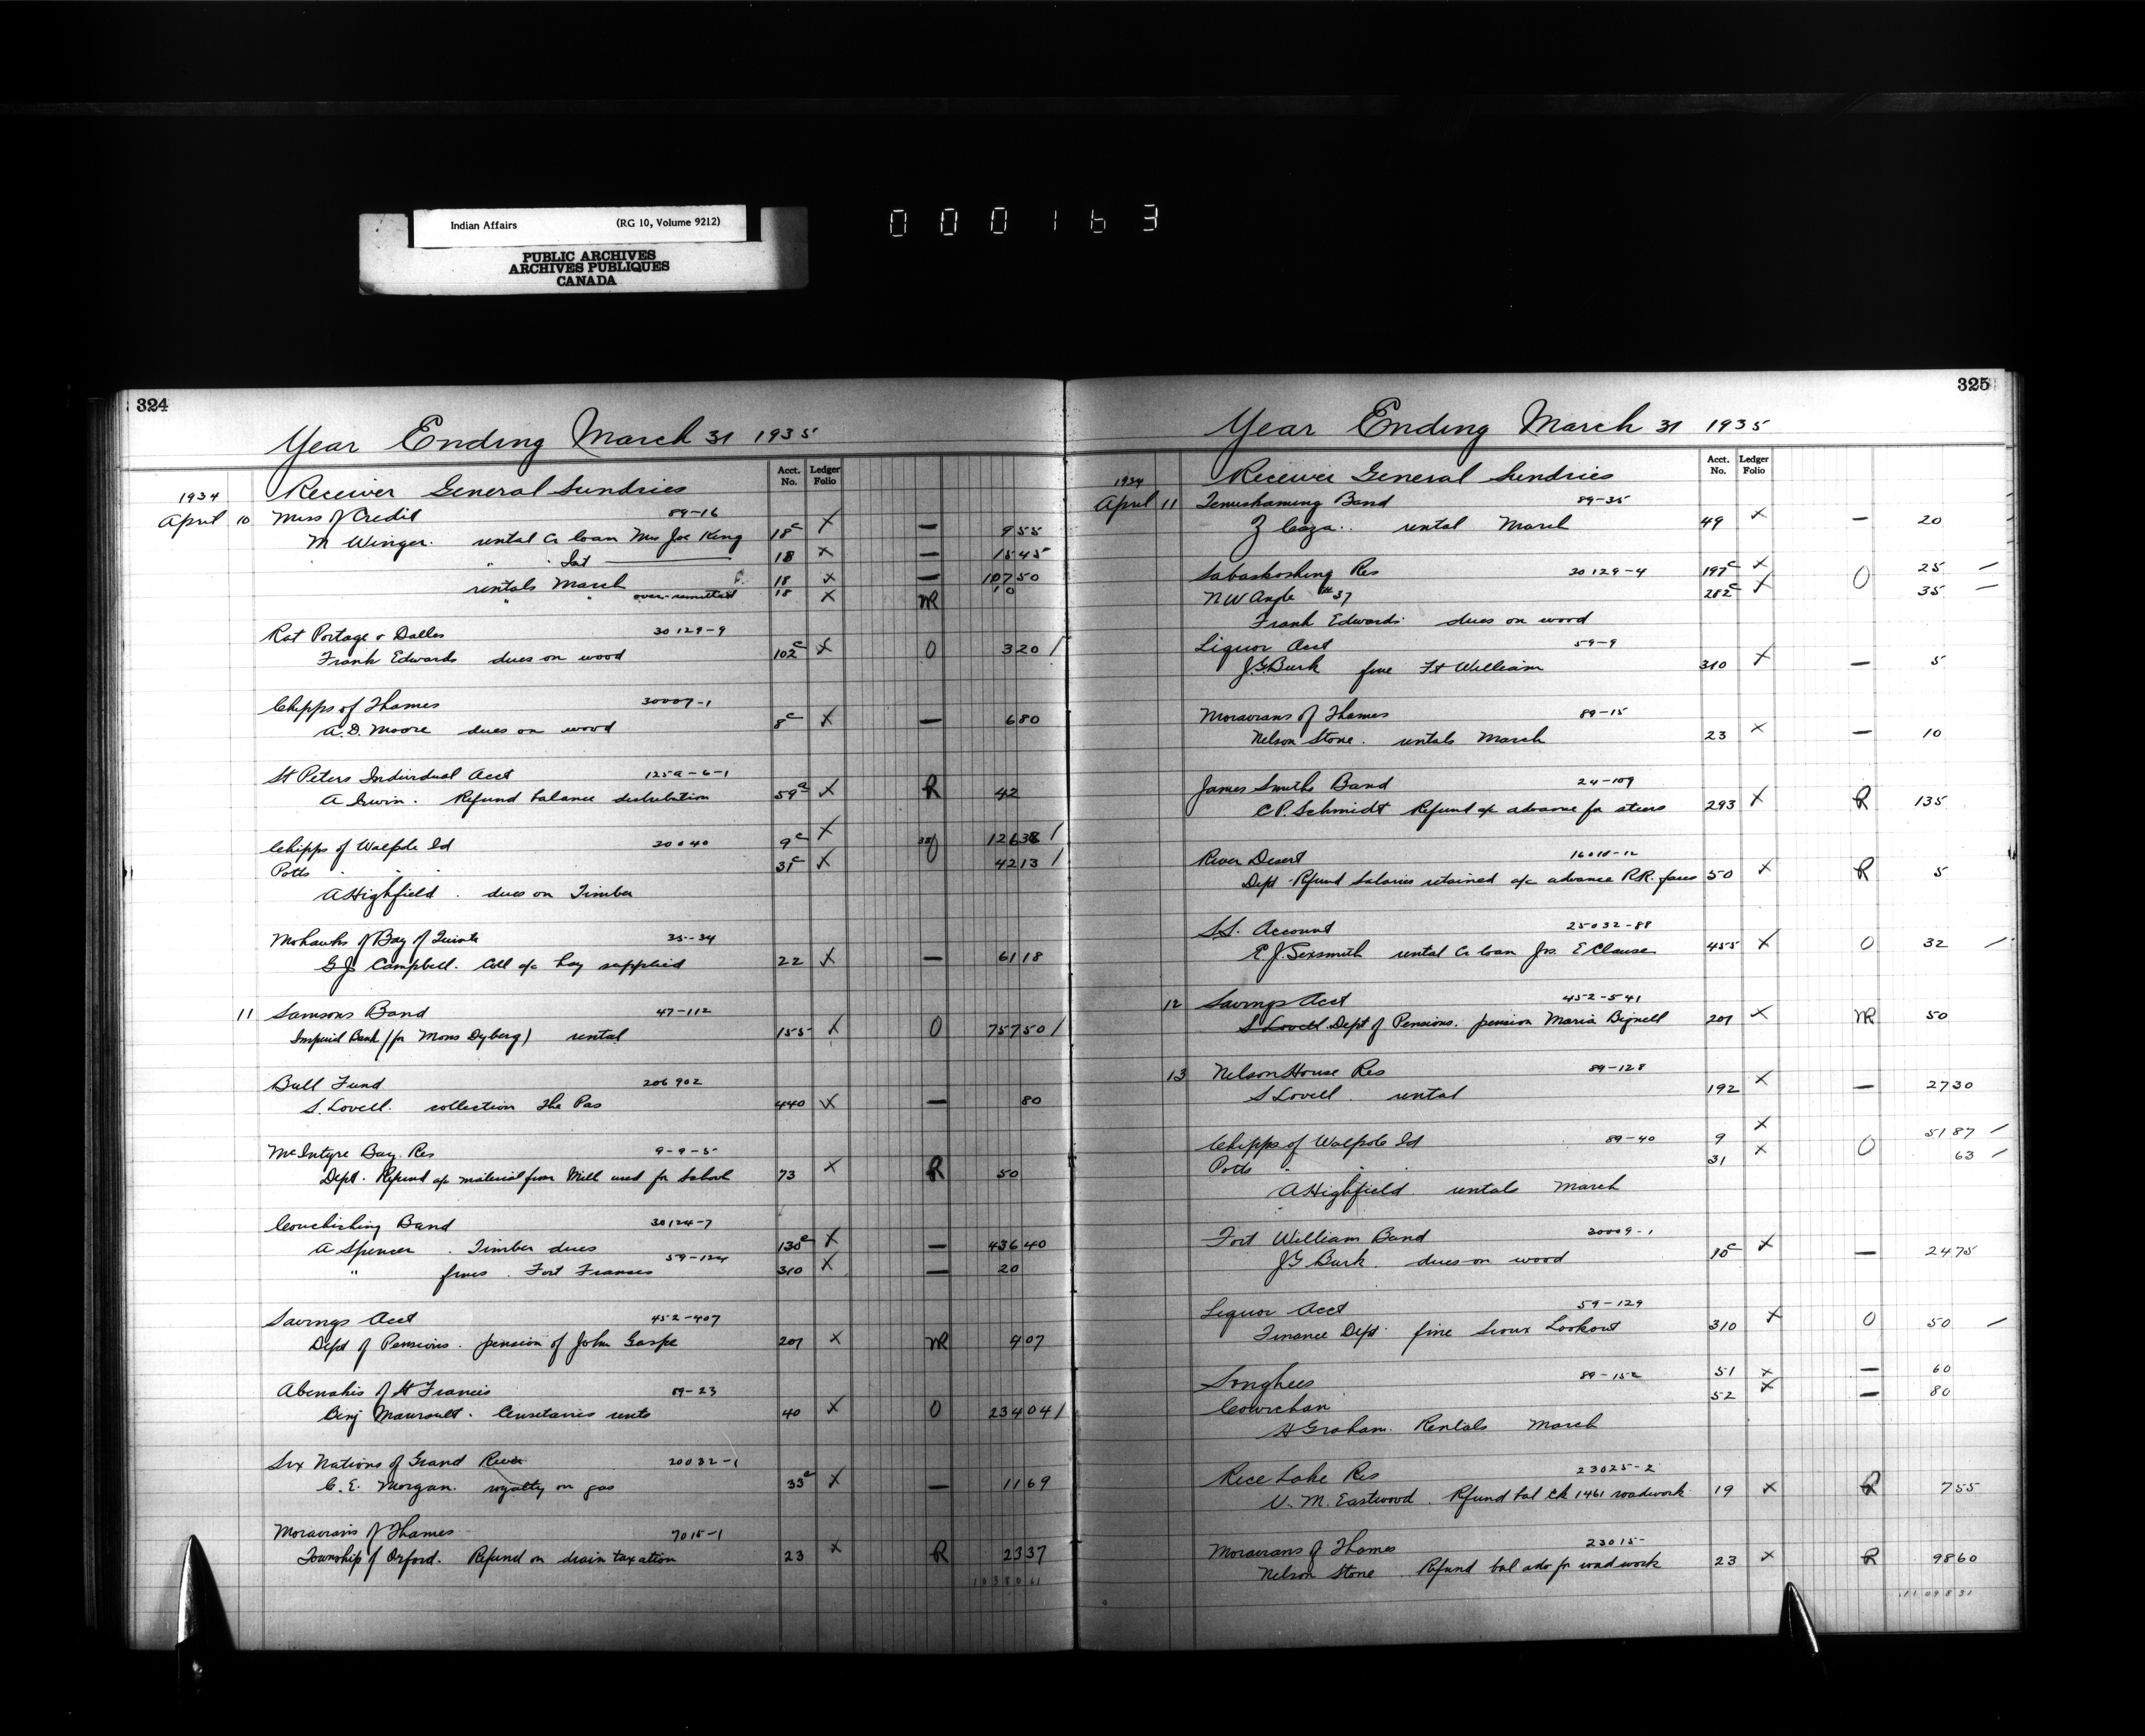 Indian Affairs (RG 10, Volume 9212)
PUBLIC ARCHIVES
ARCHIVES PUBLIQUES
CANADA
000163
324
Year Ending March 31 1935
Acct. No. Ledger Folio
1934 Receiver General Sundries
April 10 Miss of Credit 89-16
M Winger. rental a loan Mrs Joe King 18c X — 9 55
" " Int 18 X — 15 45
rentals March 18 X — 107 50
" " over-remitted 18 X NR 10
Rat Portage & Dalles 30129-9
Frank Edwards dues on wood 102c X O 3 20 /
Chipps of Thames 30007-1
A.D. Moore dues on wood 8c X — 6 80
St Peters Individual Acct 125a-6-1
A Irwin. Refund balance distribution 59a X R 42
Chipps of Walpole Id 20040 9c X 126 38 /
Potts " " 31c X O 42 13 /
A Highfield. dues on Timber
Mohawks of Bay of Quinte 35-34
G.J. Campbell. Coll a/c hay supplied 22 X — 61 18
11 Samsons Band 47-112
Imperial Bank (for Mons Dyberg) rental 155 X O 757 50 /
Bull Fund 206902
S. Lovell. collection The Pas 440 X — 80
McIntyre Bay Res 9-9-5
Dept. Refund a/c material from Mill used for School 73 X R 50
Couchiching Band 30124-7
A Spencer. Timber dues 130c X — 436 40
" fines. Fort Frances 59-124 310 X — 20
Savings Acct 452-407
Dept of Pensions. pension of John Gaspe 201 X NR 407
Abenakis of St Francis 89-23
Benj Maurault. Censitaires rents 40 X O 234 04 /
Six Nations of Grand River 20032-1
C.E. Morgan. royalty on gas 33c X — 11 69
Moravians of Thames 7015-1
Township of Orford. Refund on drain taxation 23 X R 23 37
325
Year Ending March 31 1935
Acct. No. Ledger Folio
1934 Receiver General Sundries
April 11 Temiskaming Band 89-35
Z Caza.. rental March 49 X — 20
Sabaskoshing Res 30129-4 197c X 25 —
NW Angle #37 282c X O 35 —
Frank Edwards. dues on wood
Liquor Acct 59-9
J.G. Burk fine Ft William 310 X — 5
Moravians of Thames 89-15
Nelson Stone. rentals March 23 X — 10
James Smiths Band 24-109
C.P. Schmidt Refund a/c advance for steers 293 X R 135
River Desert 16018-12
Dept Refund Salaries retained a/c advance R.R. fares 50 X R 5
S.S. Account 25032-88
E.J. Sexsmith rental a loan Jos. E Clause 455 X O 32 /
12 Savings Acct 452-541
S Lovell Dept of Pensions. pension Maria Bignell 201 X NR 50
13 Nelson House Res 89-128
S Lovell. rental 192 X — 27 30
Chipps of Walpole Id 89-40 9 X 51 87 /
Potts " " 31 X O 63 /
A Highfield rentals March
Fort William Band 30009-1
J G Burk. dues on wood 10c X — 24 75
Liquor Acct 59-129
Finance Dept. fine Sioux Lookout 310 X O 50 /
Songhees 89-152 51 X — 60
Cowichan 52 X — 80
H Graham. Rentals March
Rice Lake Res 23025-2
V. M. Eastwood. Refund bal ck 1461 roadwork 19 X R 7 55
Moravians of Thames 23015-
Nelson Stone. Refund bal adv for roadwork 23 X R 98 60
11 098 31